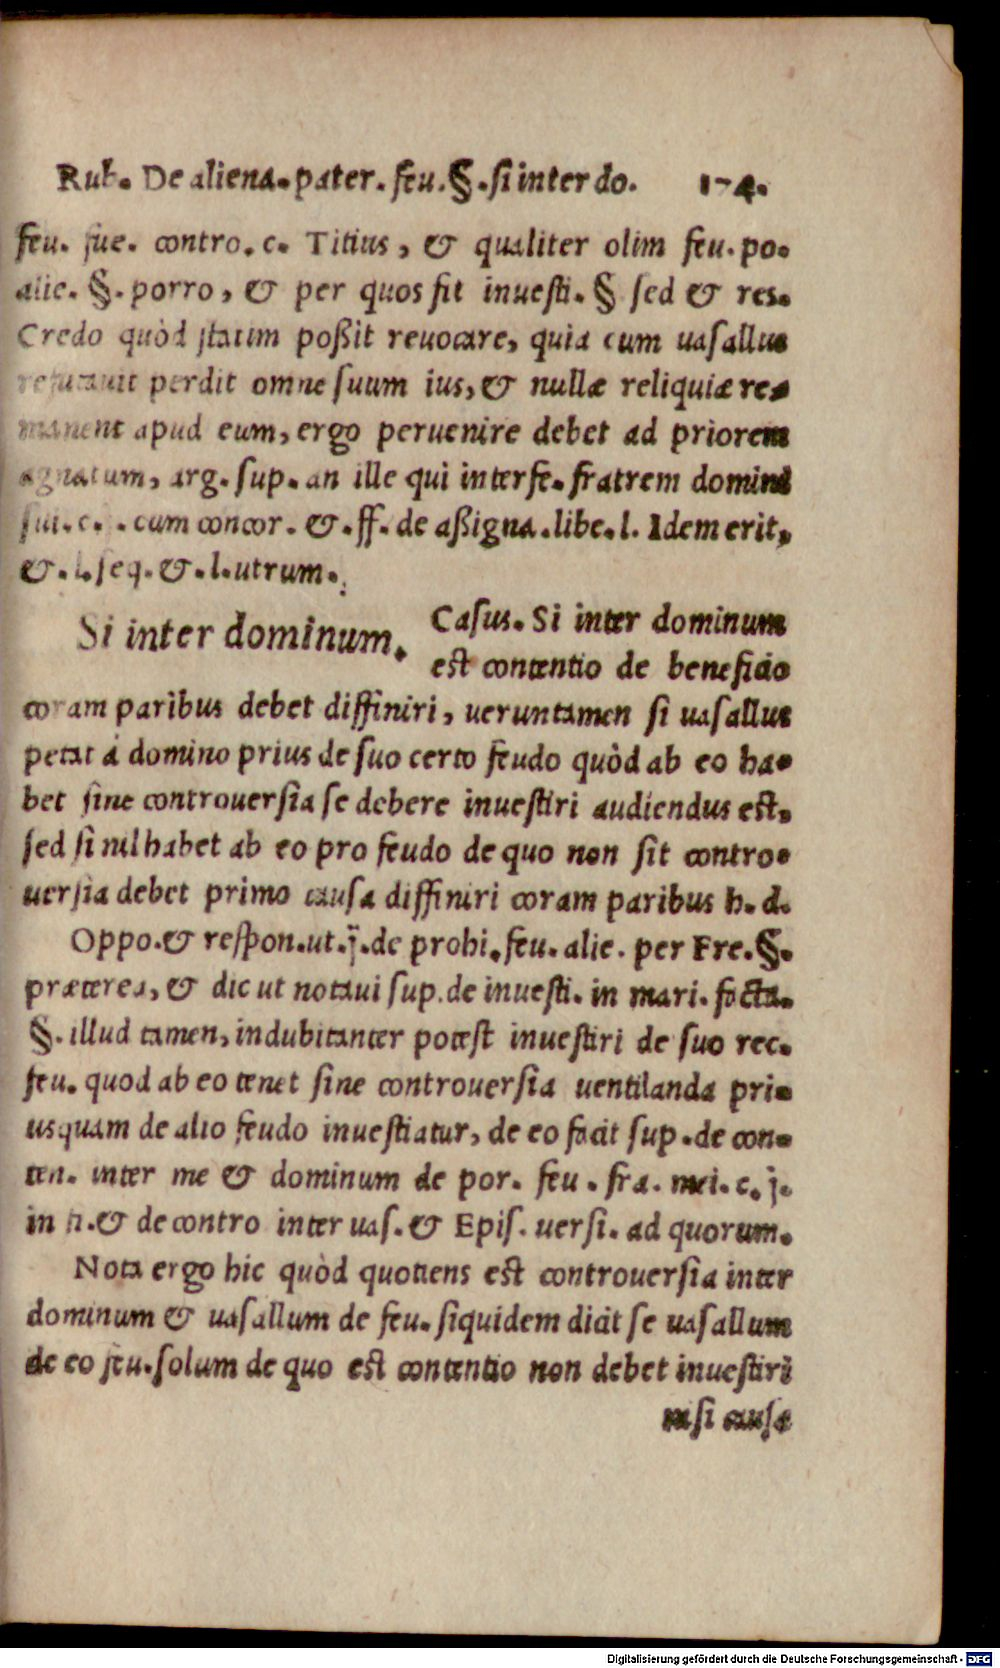 Rub. De aliena. pater. feu. §. si inter do. 174.
feu. fue. contro. c. Titius, & qualiter olim feu. po-
alie. §. porro, & per quos fit inuesti. § sed & res.
Credo quòd statim poßit reuocare, quia cum uasallus
refutauit perdit omne suum ius, & nullæ reliquiæ re-
manent apud eum, ergo peruenire debet ad priorem
agnatum, arg. sup. an ille qui interfe. fratrem domini
sui. c. . cum concor. &. ff. de aßigna. libe. l. Idem erit,
&. l. seq. &. l. utrum.
Si inter dominum. Casus. Si inter dominum
est contentio de beneficio
coram paribus debet diffiniri, ueruntamen si uasallus
petat à domino prius de suo certo feudo quòd ab eo ha-
bet sine controuersia se debere inuestiri audiendus est.
sed si nil habet ab eo pro feudo de quo non sit contro-
uersia debet primo causa diffiniri coram paribus h. d.
Oppo. & respon. ut. j. de prohi. feu. alie. per Fre. §.
præterea, & dic ut notaui sup. de inuesti. in mari. facta.
§. illud tamen, indubitanter potest inuestiri de suo rec.
feu. quod ab eo tenet sine controuersia uentilanda pri-
usquam de alio feudo inuestiatur, de eo facit sup. de con-
ten. inter me & dominum de por. feu. fra. mei. c. j.
in fi. & de contro inter uas. & Epis. uersi. ad quorum.
Nota ergo hic quòd quotiens est controuersia inter
dominum & uasallum de feu. siquidem dicit se uasallum
de eo feu. solum de quo est contentio non debet inuestiri
nisi causa
Digitalisierung gefördert durch die Deutsche Forschungsgemeinschaft - DFG